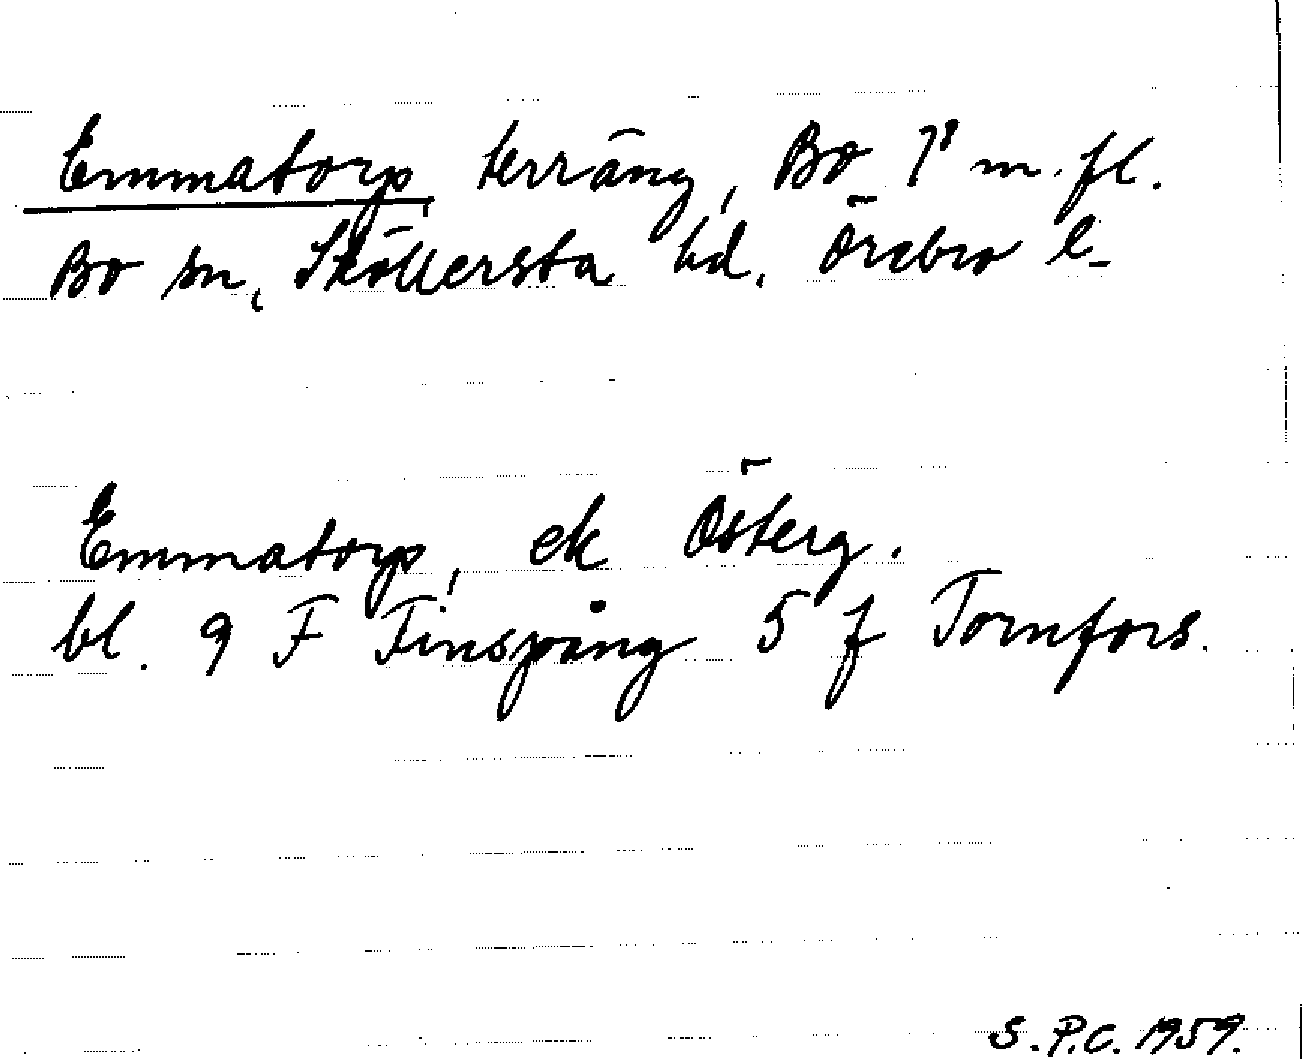 Emmatorp, terräng, Bo 1² m.fl.
Bo sn, Sköllersta hd. Örebro l.
Emmatorp, ek Österg.
bl. 9 F Finspång 5 f Tornfors.
S.P.C. 1959.